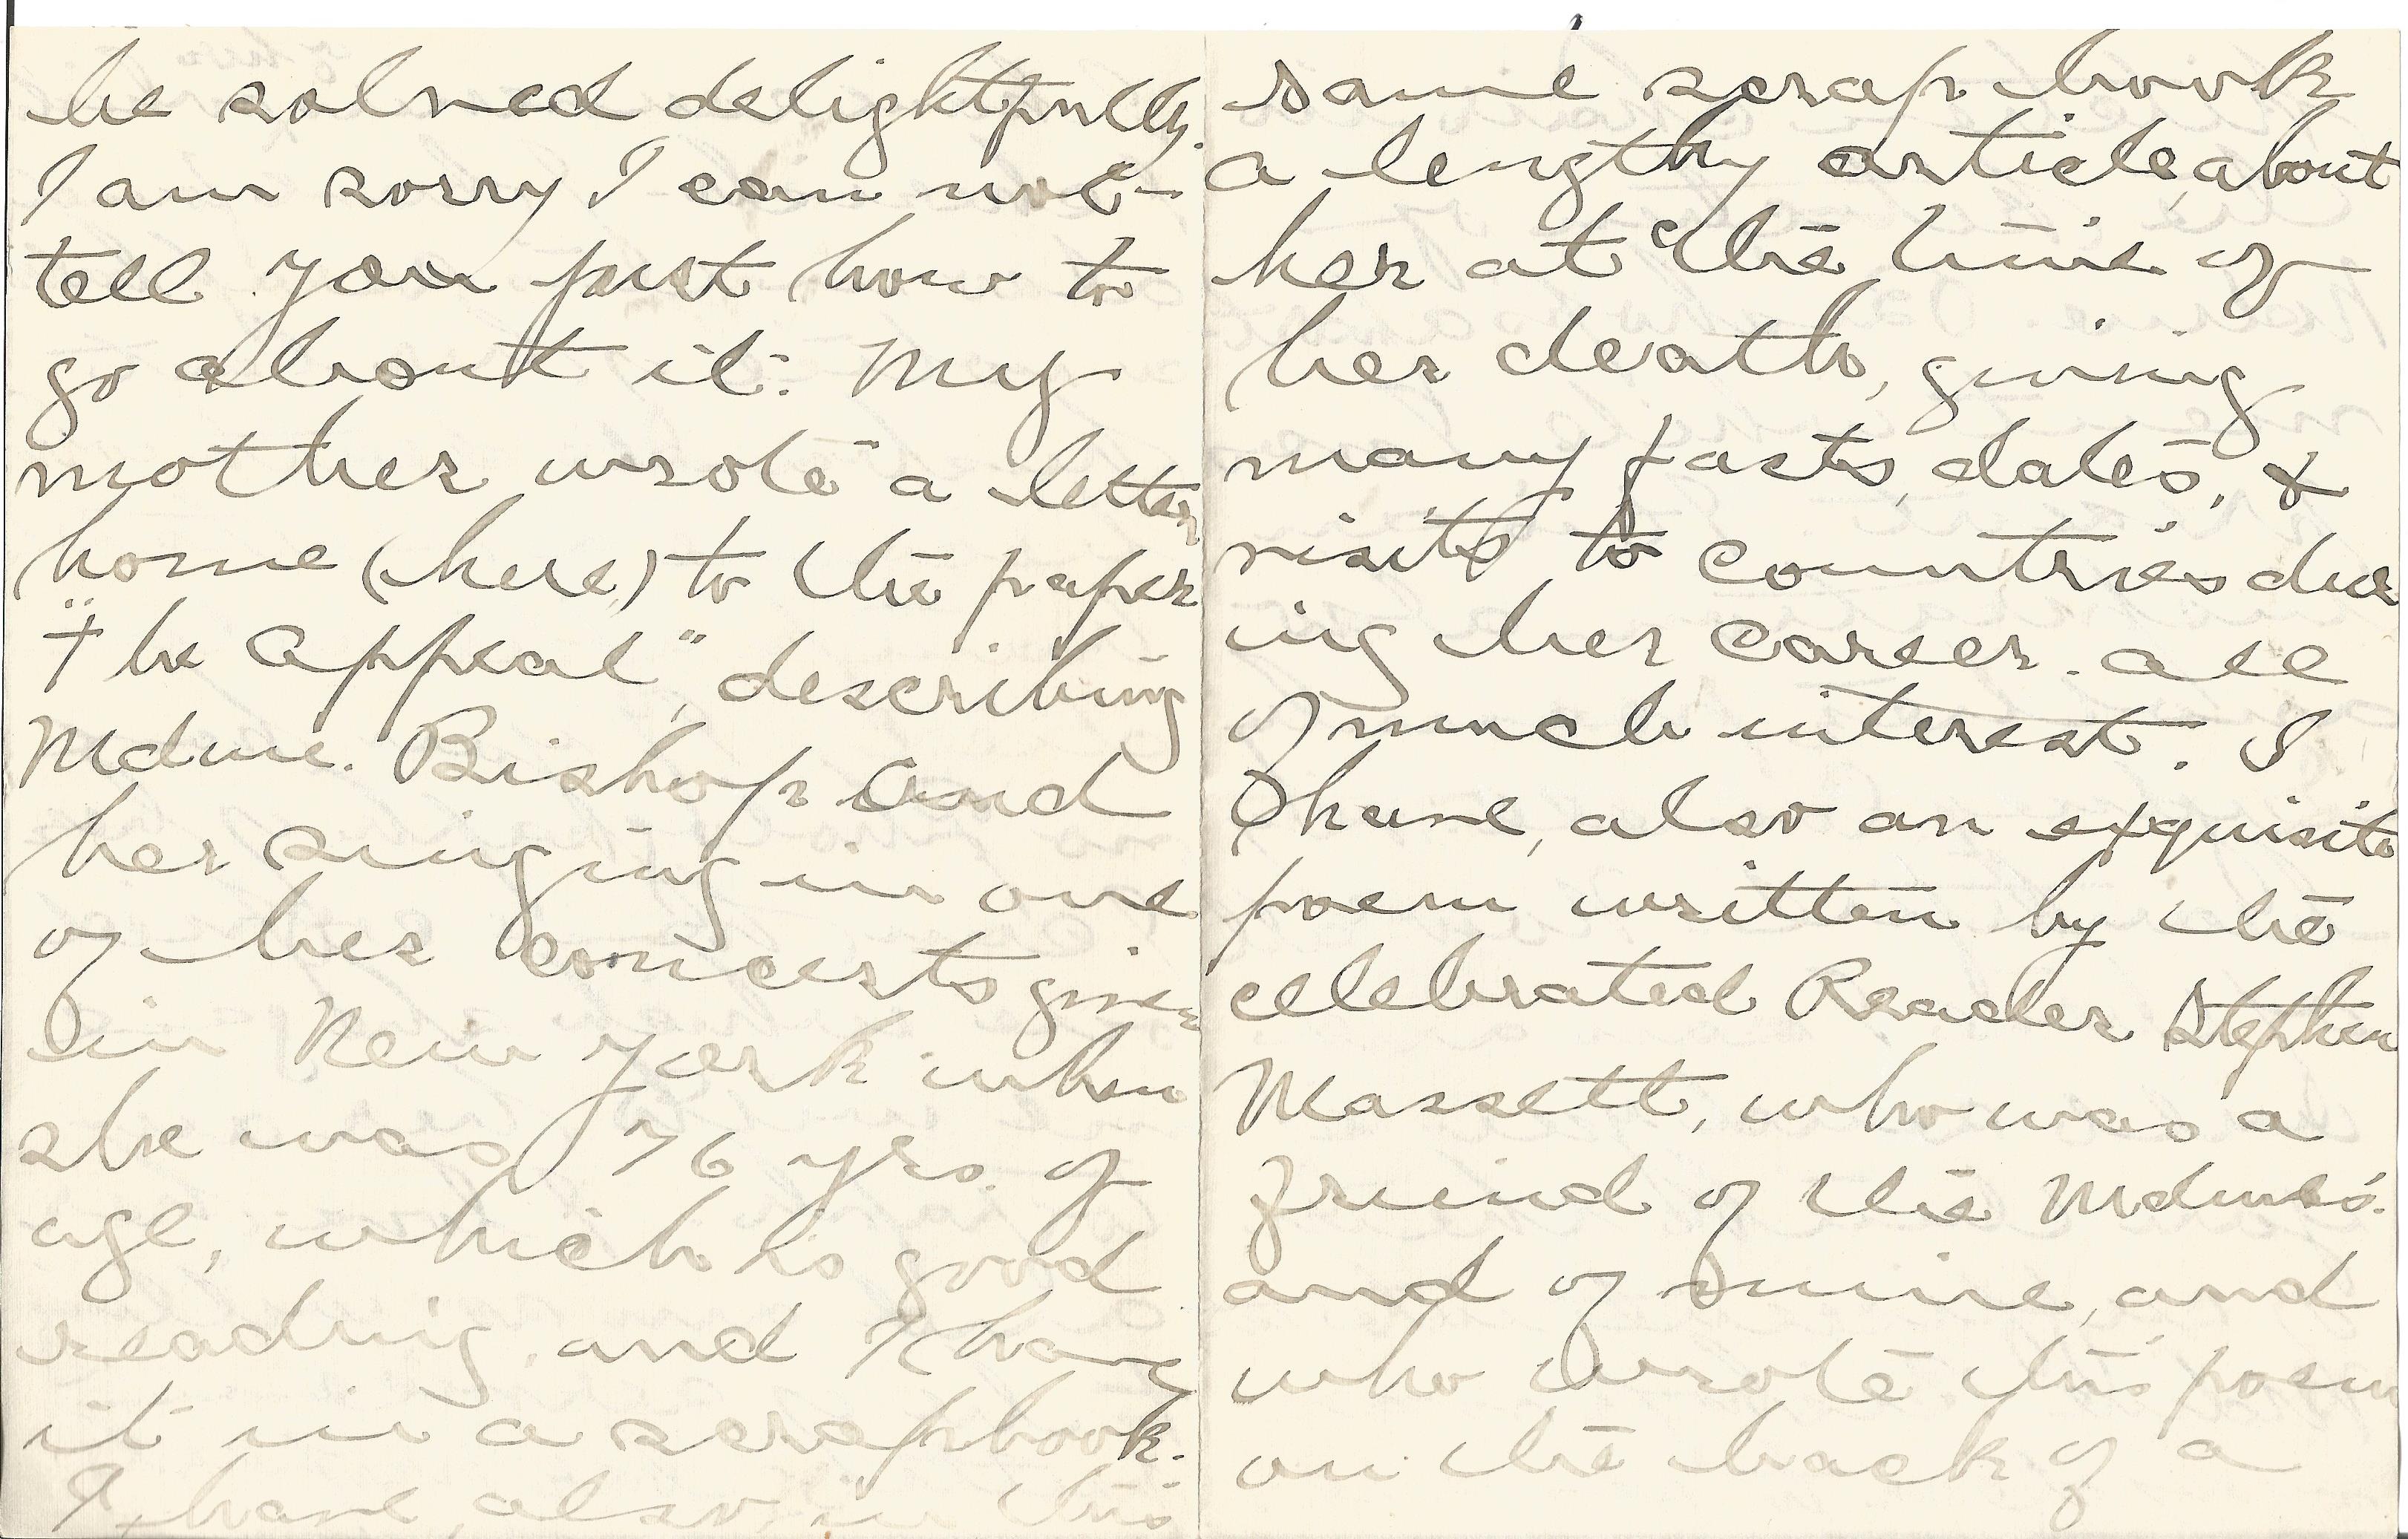 be solved delightfully.
I am sorry I can not
tell you just how to
go about it. My
mother wrote a letter
home (here) to the paper
"The Appeal", describing
Mdme. Bishop and
her singing in one
of her concerts given
in New York when
she was 76 yrs. of
age, which is good
reading. and I have
it in a scrapbook.
I have, also, in this
same scrap book
a lengthy article, about
her at the time of
her death, giving
many facts, dates, &
visits to countries dur
ing her career. all
of much interest. I
have, also an exquisite
poem written by the
celebrated Reader Stephen
Massett, who was a
friend of the Mdme's.
and of mine, and
who wrote this poem
on the back of a